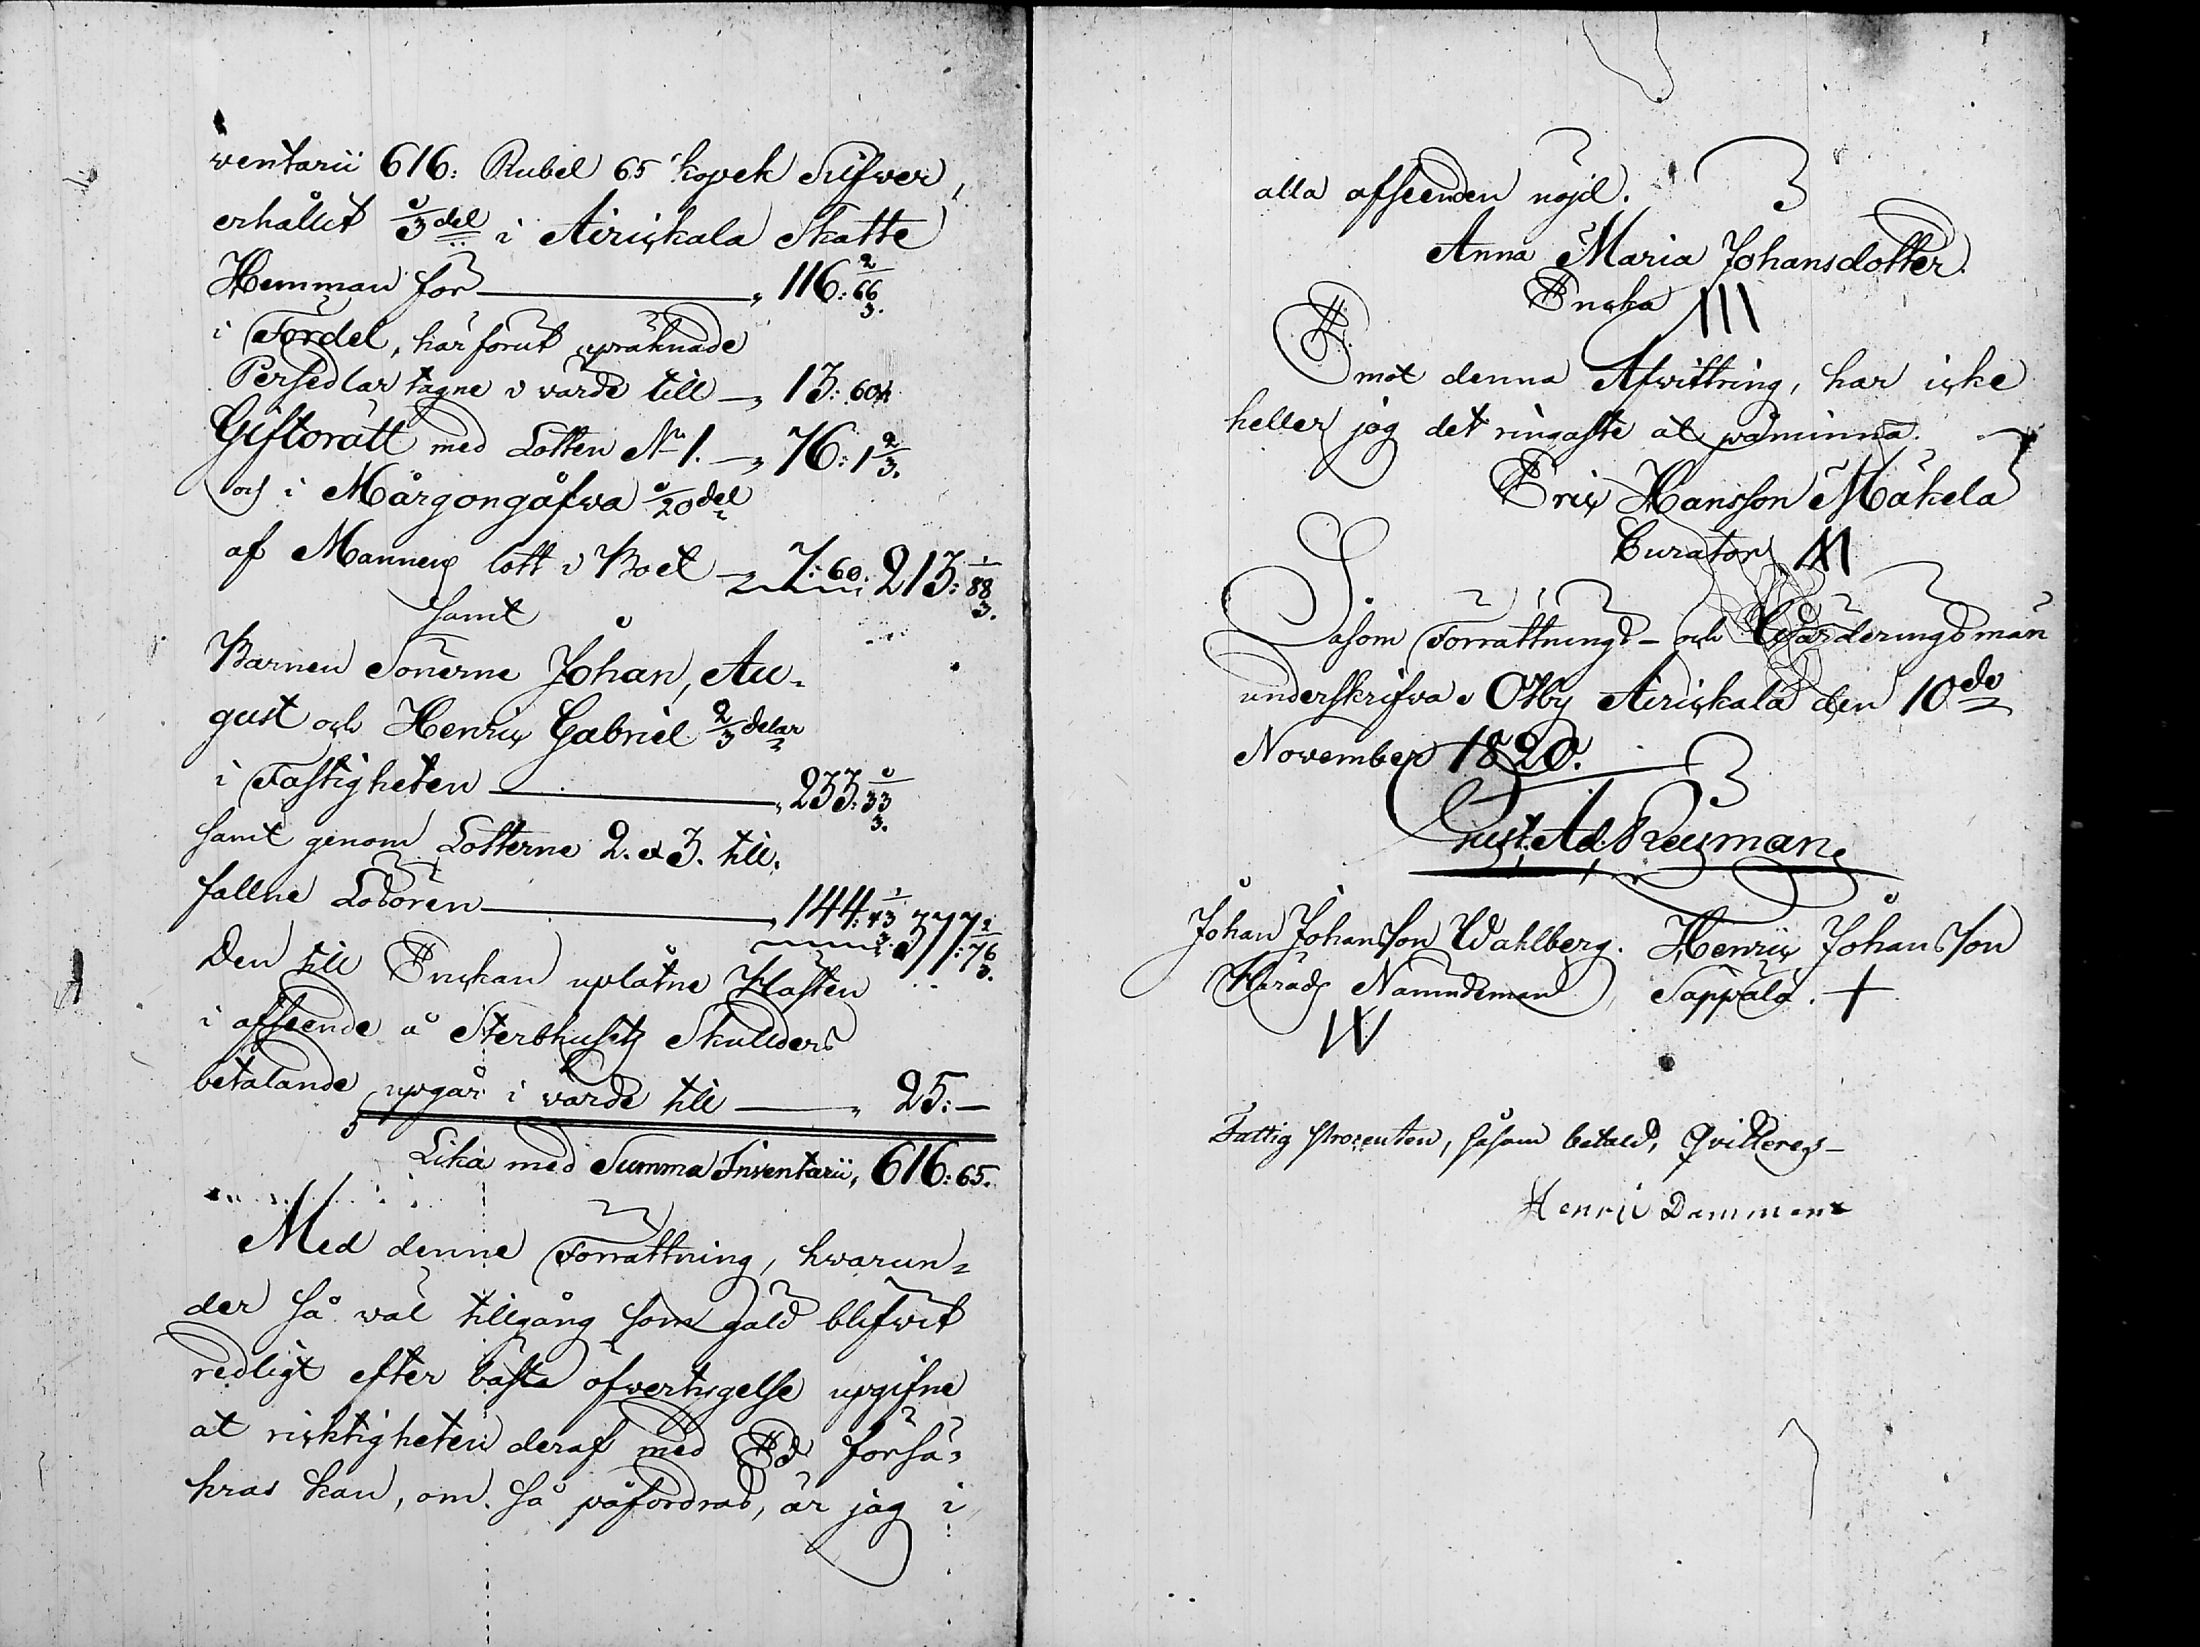 ventarii 616: Rubel 65 kopek Silfwer,
erhållit 1/3 del i Airickala Skatte
Hemman för — " 116: 66 2/3.
i Fördel, här förut upräknade
Persedlar tagne i värde till — " 13: 60.
Giftorätt med Lotten No 1. — " 76: 1 2/3.
och i Mårgongåfwa 1/20 del
af Mannens lott i Boet — " 7: 60. 213: 88 1/3.
samt
Barnen Sönerne Johan, Au=
gust och Henric Gabriel 2/3 delar
i Fastigheten — " 233: 33 1/3.
samt genom Lotterne 2. & 3. till=
fallne Lösören — " 144: 43 1/3. 377: 76 2/3.
Den till Enckan uplåtne Hästen
i afseende å Sterbhusets Skulders
betalande upgår i värde till — " 25: —
Lika med Summa Inventarii, 616: 65.
Med denne Förrättning, hvarun=
der så wäl tillgång som gäld blifwit
redligt efter bästa öfwertygelse upgifne
at ricktigheten deraf med Ed försä=
kras kan, om så påfordras, är jag i
alla afseenden nöjd.
Anna Maria Johansdotter.
Encka III
Emot denna Afwittring, har icke
heller jag det ringaste at påminna.
Eric Hansson Mäkelä
Curator
Såsom Förrättnings- och Wärderingsmän
underskrifva i Otby Airickala den 10de
November 1820.
Gust. Ad.
Johan Johansson Wahlberg. Henric Johansson
Härads Nämndeman Sappala. +
W
Fattig Procenten, såsom betald, Qvitteras—
Henric